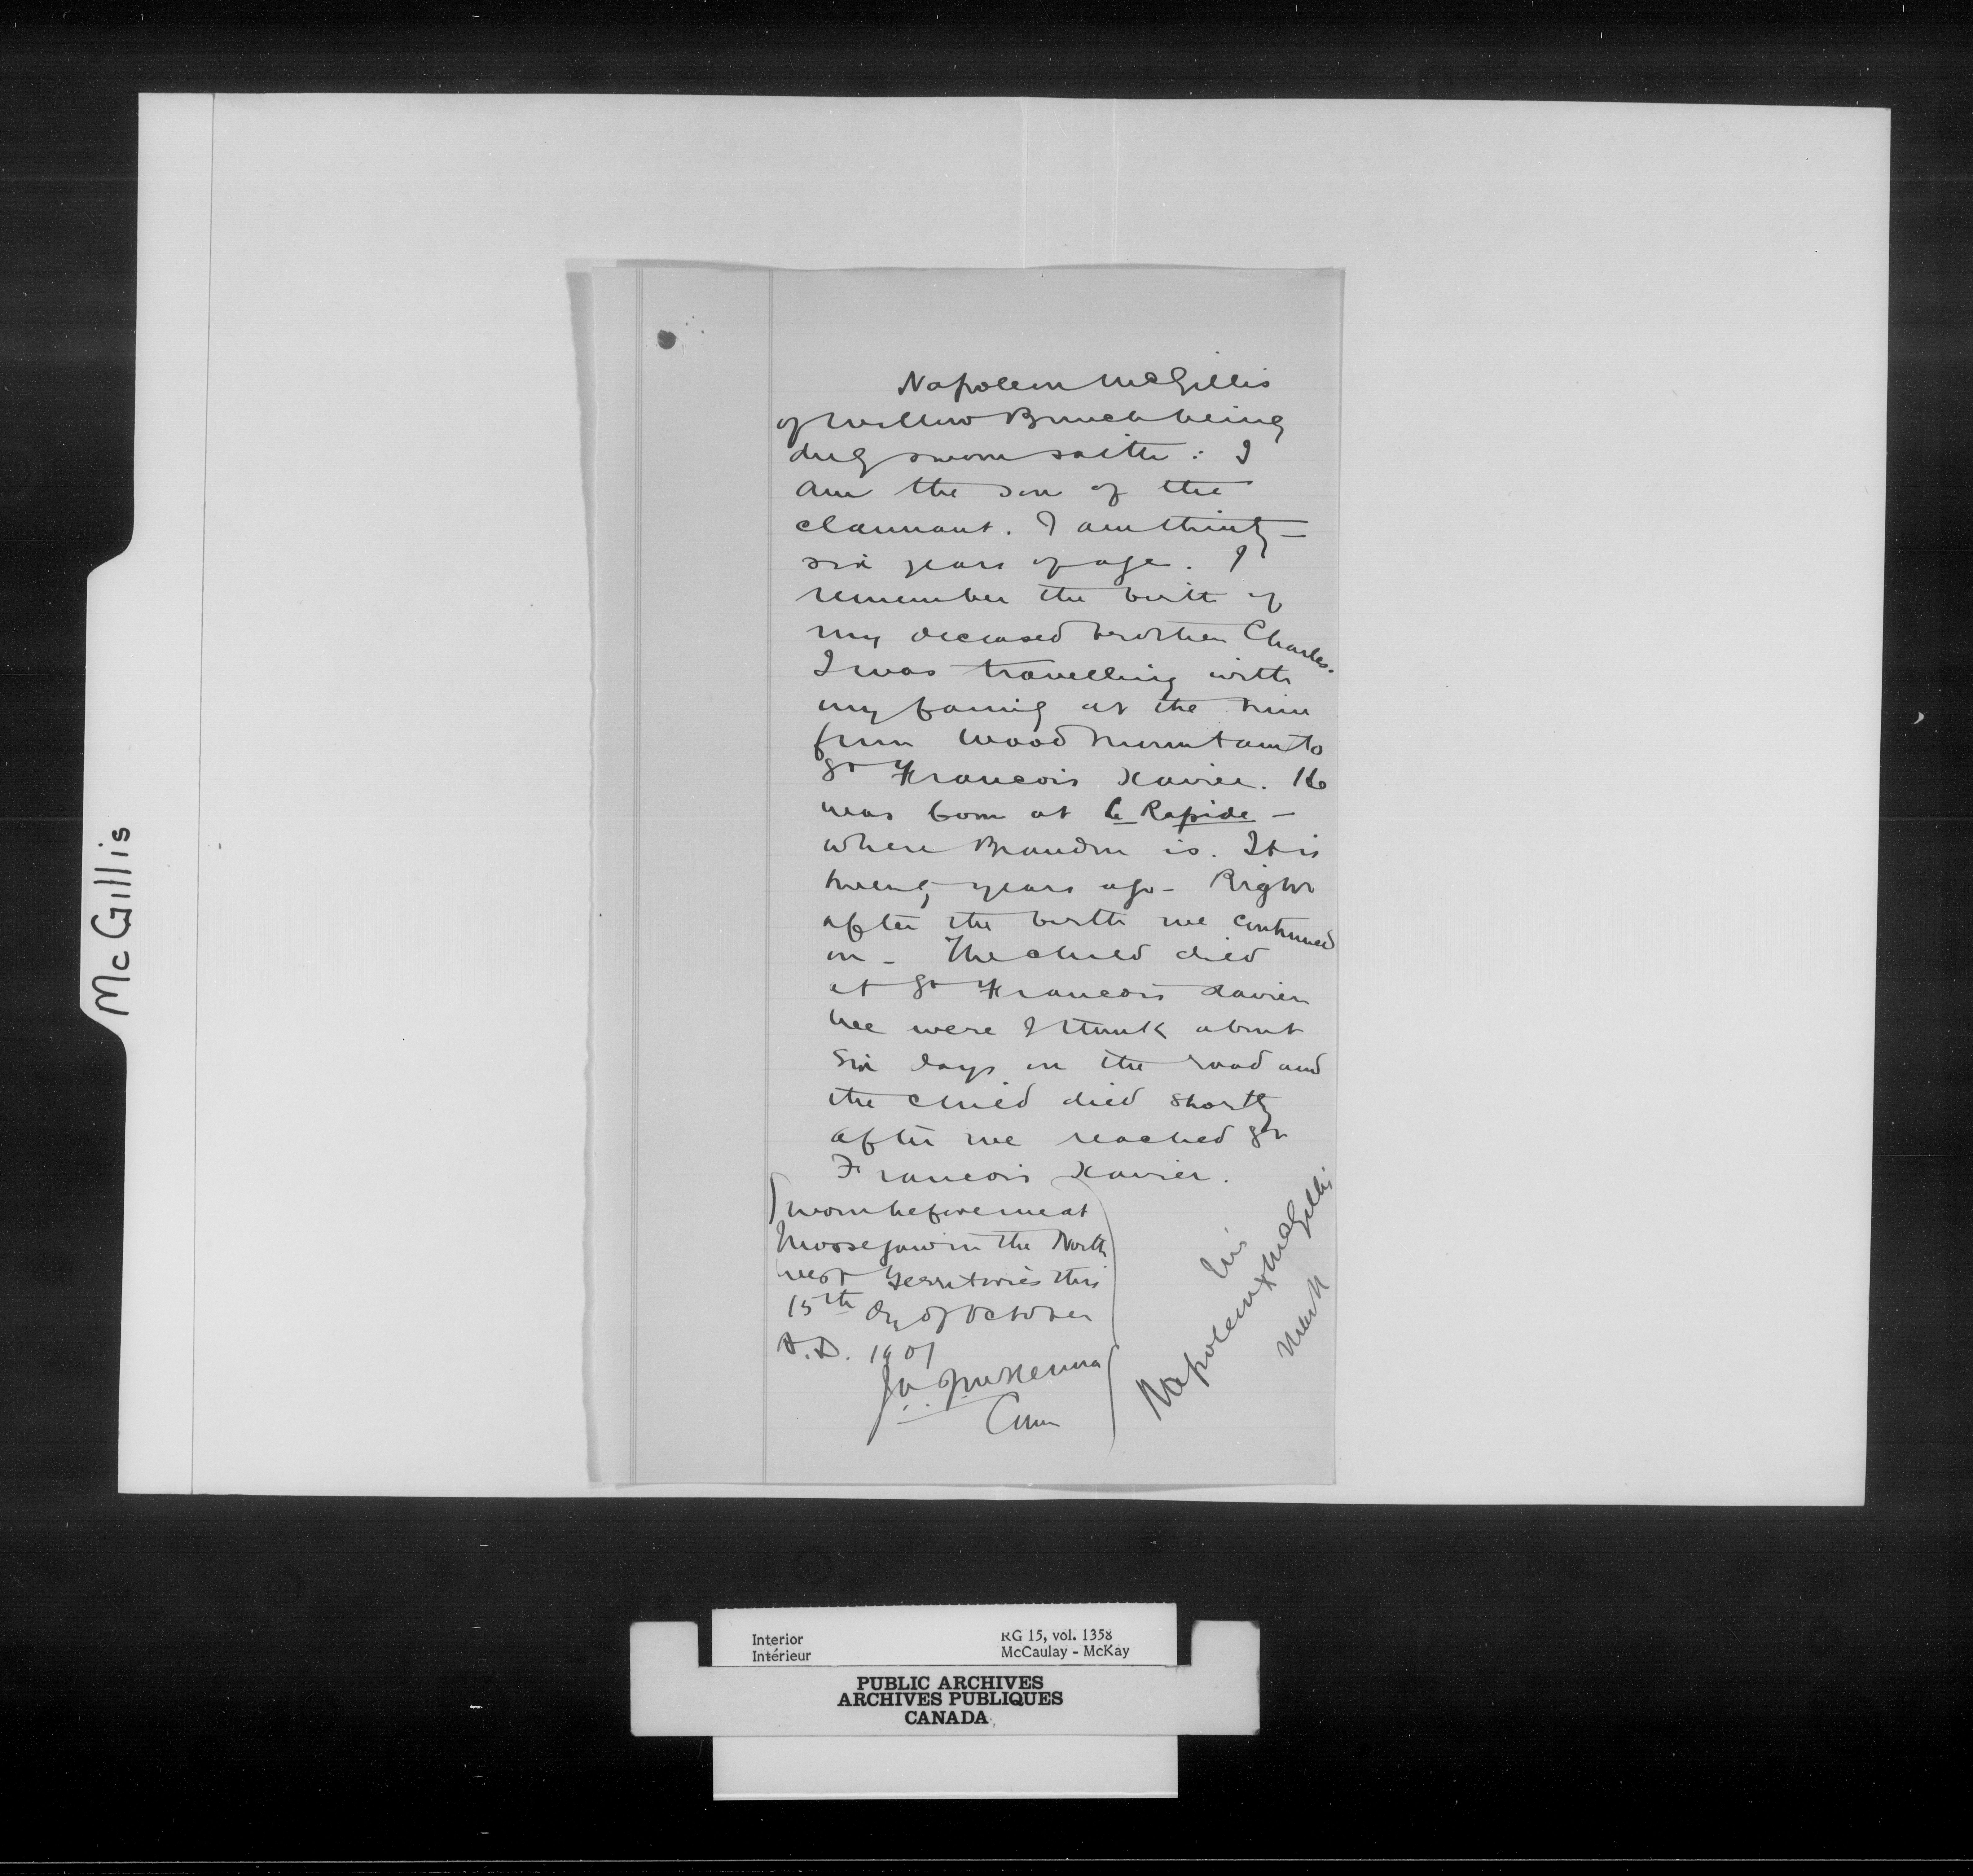 McGillis
Napoleon McGillis
of Willow Bunch being
duly sworn saith: I
am the son of the
claimant. I am thirty-
six years of age. I
remember the birth of
my deceased brother Charles.
I was travelling with
my family at the time
from Wood Mountain to
St Francois Xavier. He
was born at le Rapide —
where Brandon is. It is
twenty years ago - Right
after the birth we continued
on - The child died
at St Francois Xavier
We were I think about
six days on the road and
the child died shortly
after we reached St
Francois Xavier.
Sworn before me at
Moosejaw in the North
West Territories this
15th day of October
A.D. 1901
J.A.J. McKenna
Comr
his
Napoleon x McGillis
mark
Interior RG 15, vol. 1358
Intérieur McCaulay - McKay
PUBLIC ARCHIVES
ARCHIVES PUBLIQUES
CANADA